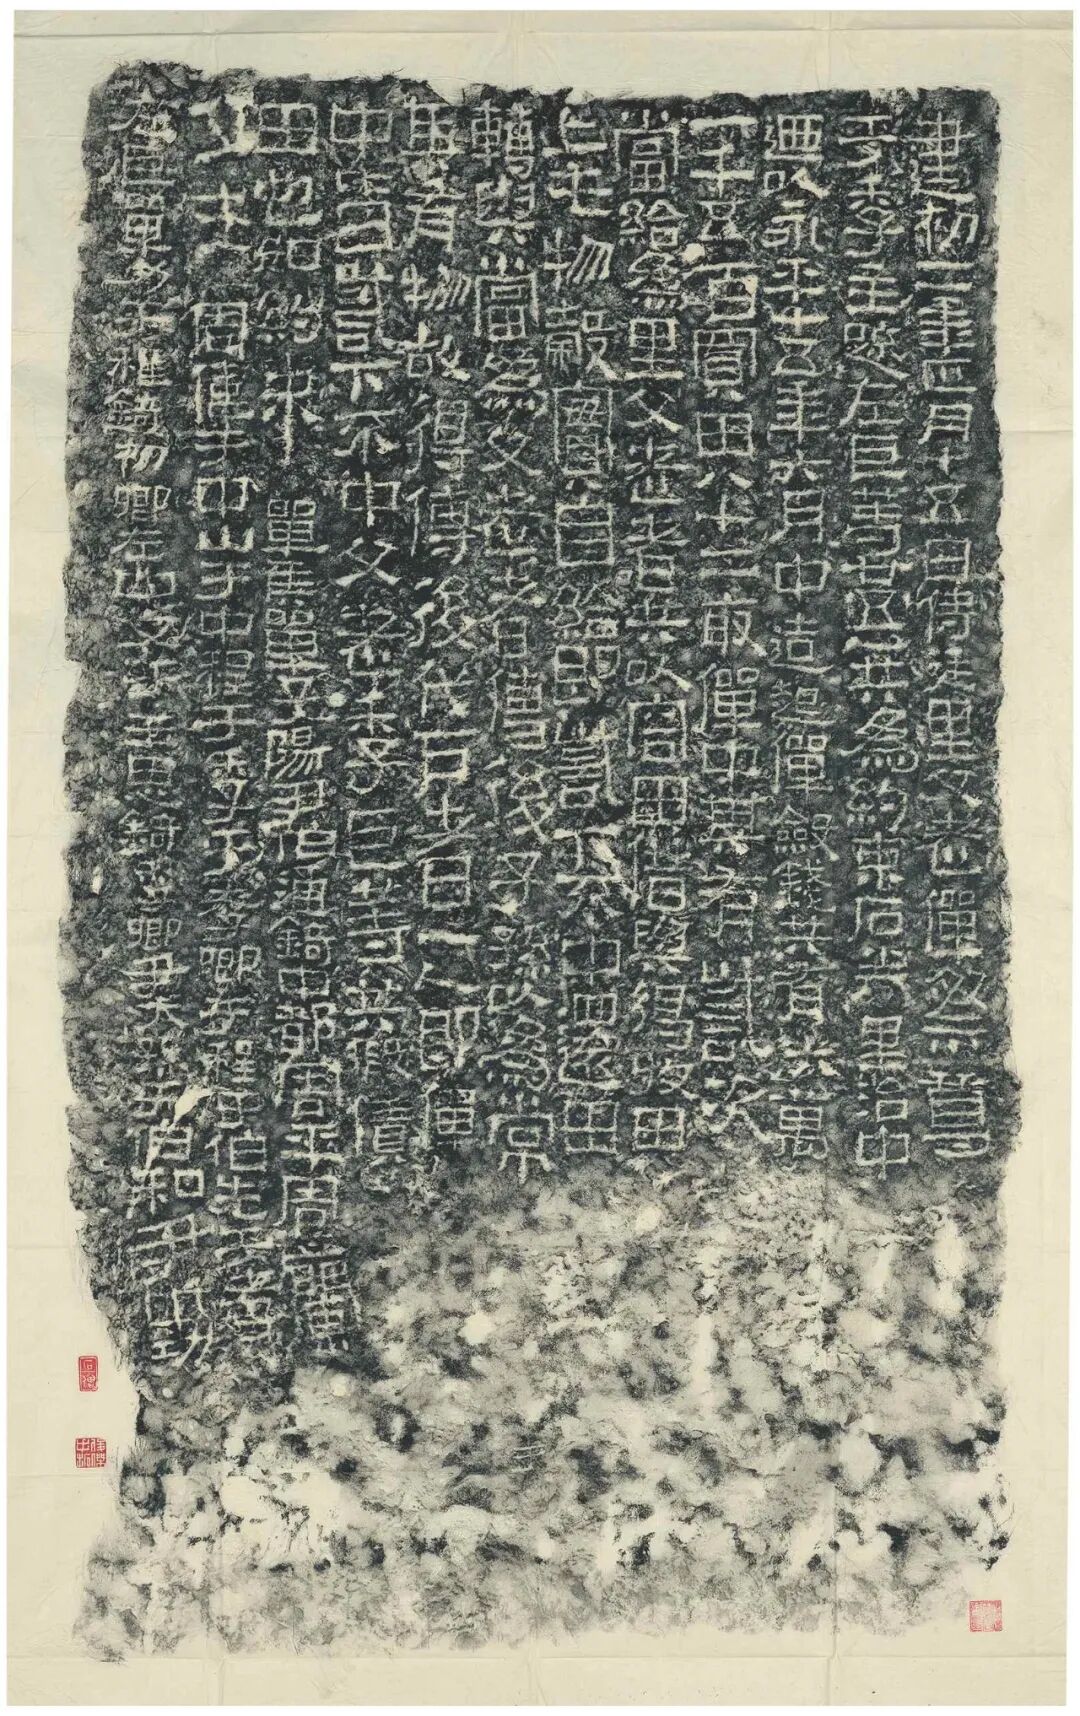 建初二年正月十五日侍廷里父老僤祭尊
于季主疏左巨等廿五人共為約束石券里治中
迺以永平十五年六月中造起僤斂錢共有六萬
一千五百買田八十二畝僤中其有訾次
當給為里父老者共以客田借與得收田
上毛物穀實自給即訾下不中還田
轉與當為父老者傳後子孫以為常
其有物故得傳後代戶者一人即僤
中皆訾下不中父老季巨等共假賃
田它如約束單侯單子陽尹伯通錡中都周平周蘭
周偉于中山于中程于季于孝卿于程于伯先于孝
左巨單力于稚錡初卿左中王思錡季卿尹太孫于伯和尹明功